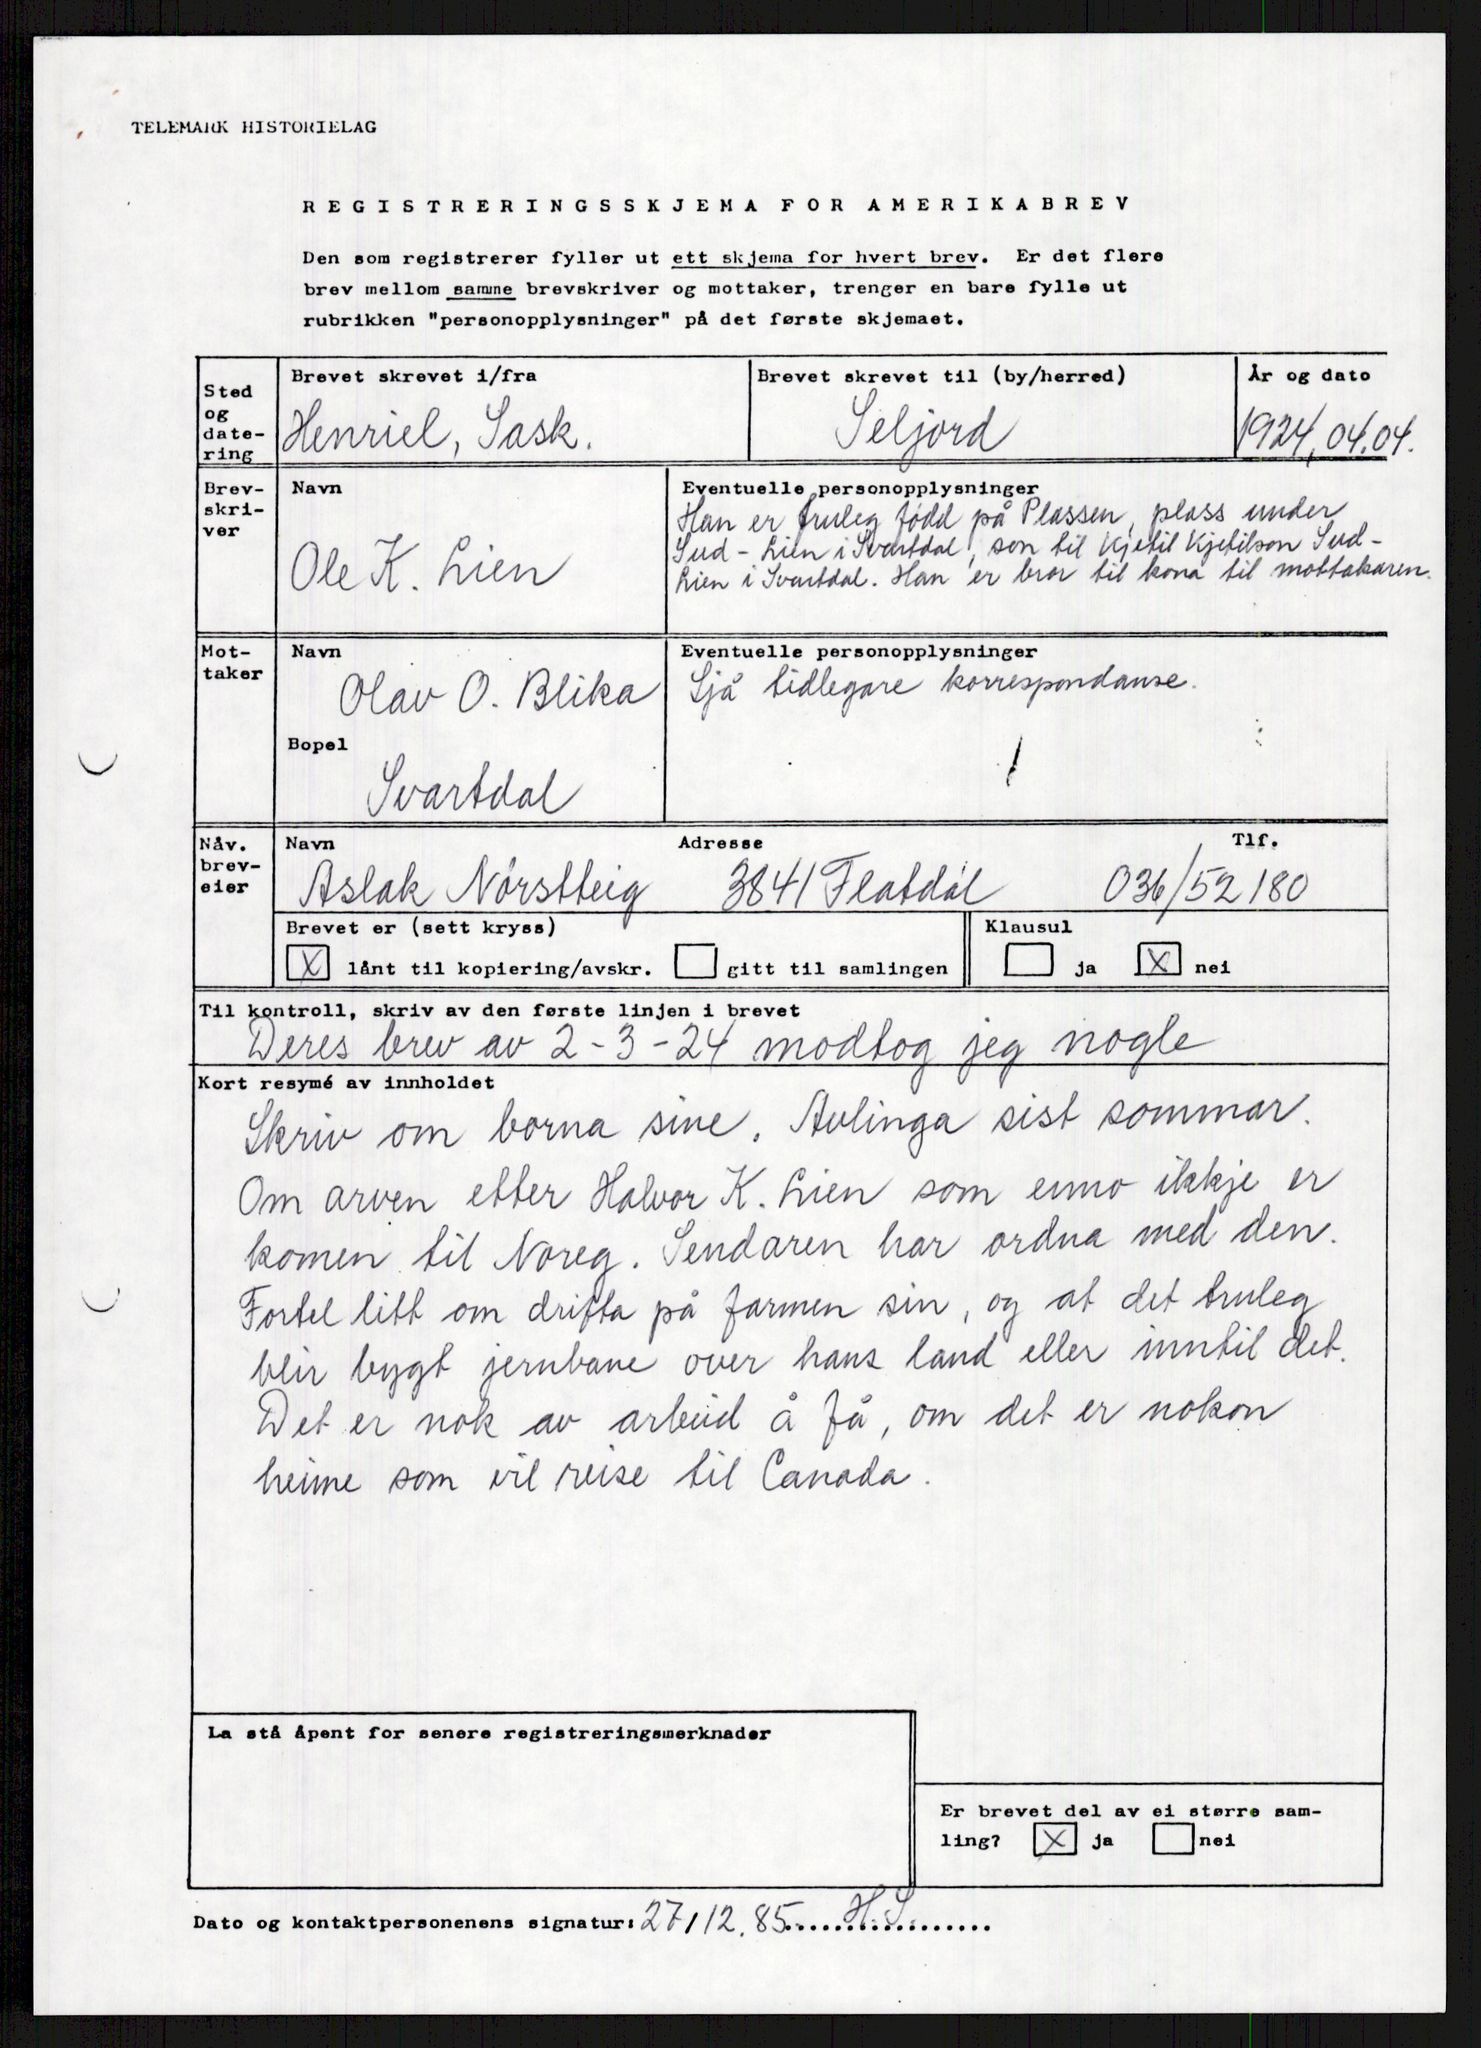 TELEMARK HISTORIELAG
REGISTRERINGSSKJEMA FOR AMERIKABREV
Den som registrerer fyller ut ett skjema for hvert brev. Er det flere
brev mellom samme brevskriver og mottaker, trenger en bare fylle ut
rubrikken "personopplysninger" på det første skjemaet.
Sted
og
date-
ring
Brevet skrevet i/fra
Henriel, Sask.
Brevet skrevet til (by/herred)
Seljord
År og dato
1924, 04.04.
Brev-
skri-
ver
Navn
Ole K. Lien
Eventuelle personopplysninger
Han er truleg fødd på Plassen, plass under
Sud-Lien i Svartdal, son til Kjetil Kjetilson Sud-
Lien i Svartdal. Han er bror til kona til mottakaren.
Mot-
taker
Navn
Olav O. Blika
Bopel
Svartdal
Eventuelle personopplysninger
Sjå tidlegare korrespondanse.
Nåv.
brev-
eier
Navn
Aslak Nørstteig
Adresse
3841 Flatdal
Tlf.
036/52180
Brevet er (sett kryss)
X lånt til kopiering/avskr.
gitt til samlingen
Klausul
ja
X nei
Til kontroll, skriv av den første linjen i brevet
Deres brev av 2-3-24 modtog jeg nogle
Kort resymé av innholdet
Skriv om borna sine. Avlinga sist sommar.
Om arven etter Halvor K. Lien som enno ikkje er
komen til Noreg. Sendaren har ordna med den.
Fortel litt om drifta på farmen sin, og at det truleg
blir bygt jernbane over hans land eller inntil det.
Det er nok av arbeid å få, om det er nokon
heime som vil reise til Canada.
La stå åpent for senere registreringsmerknader
Er brevet del av ei større sam-
ling? X ja nei
Dato og kontaktpersonenens signatur: 27/12.85 H.S.